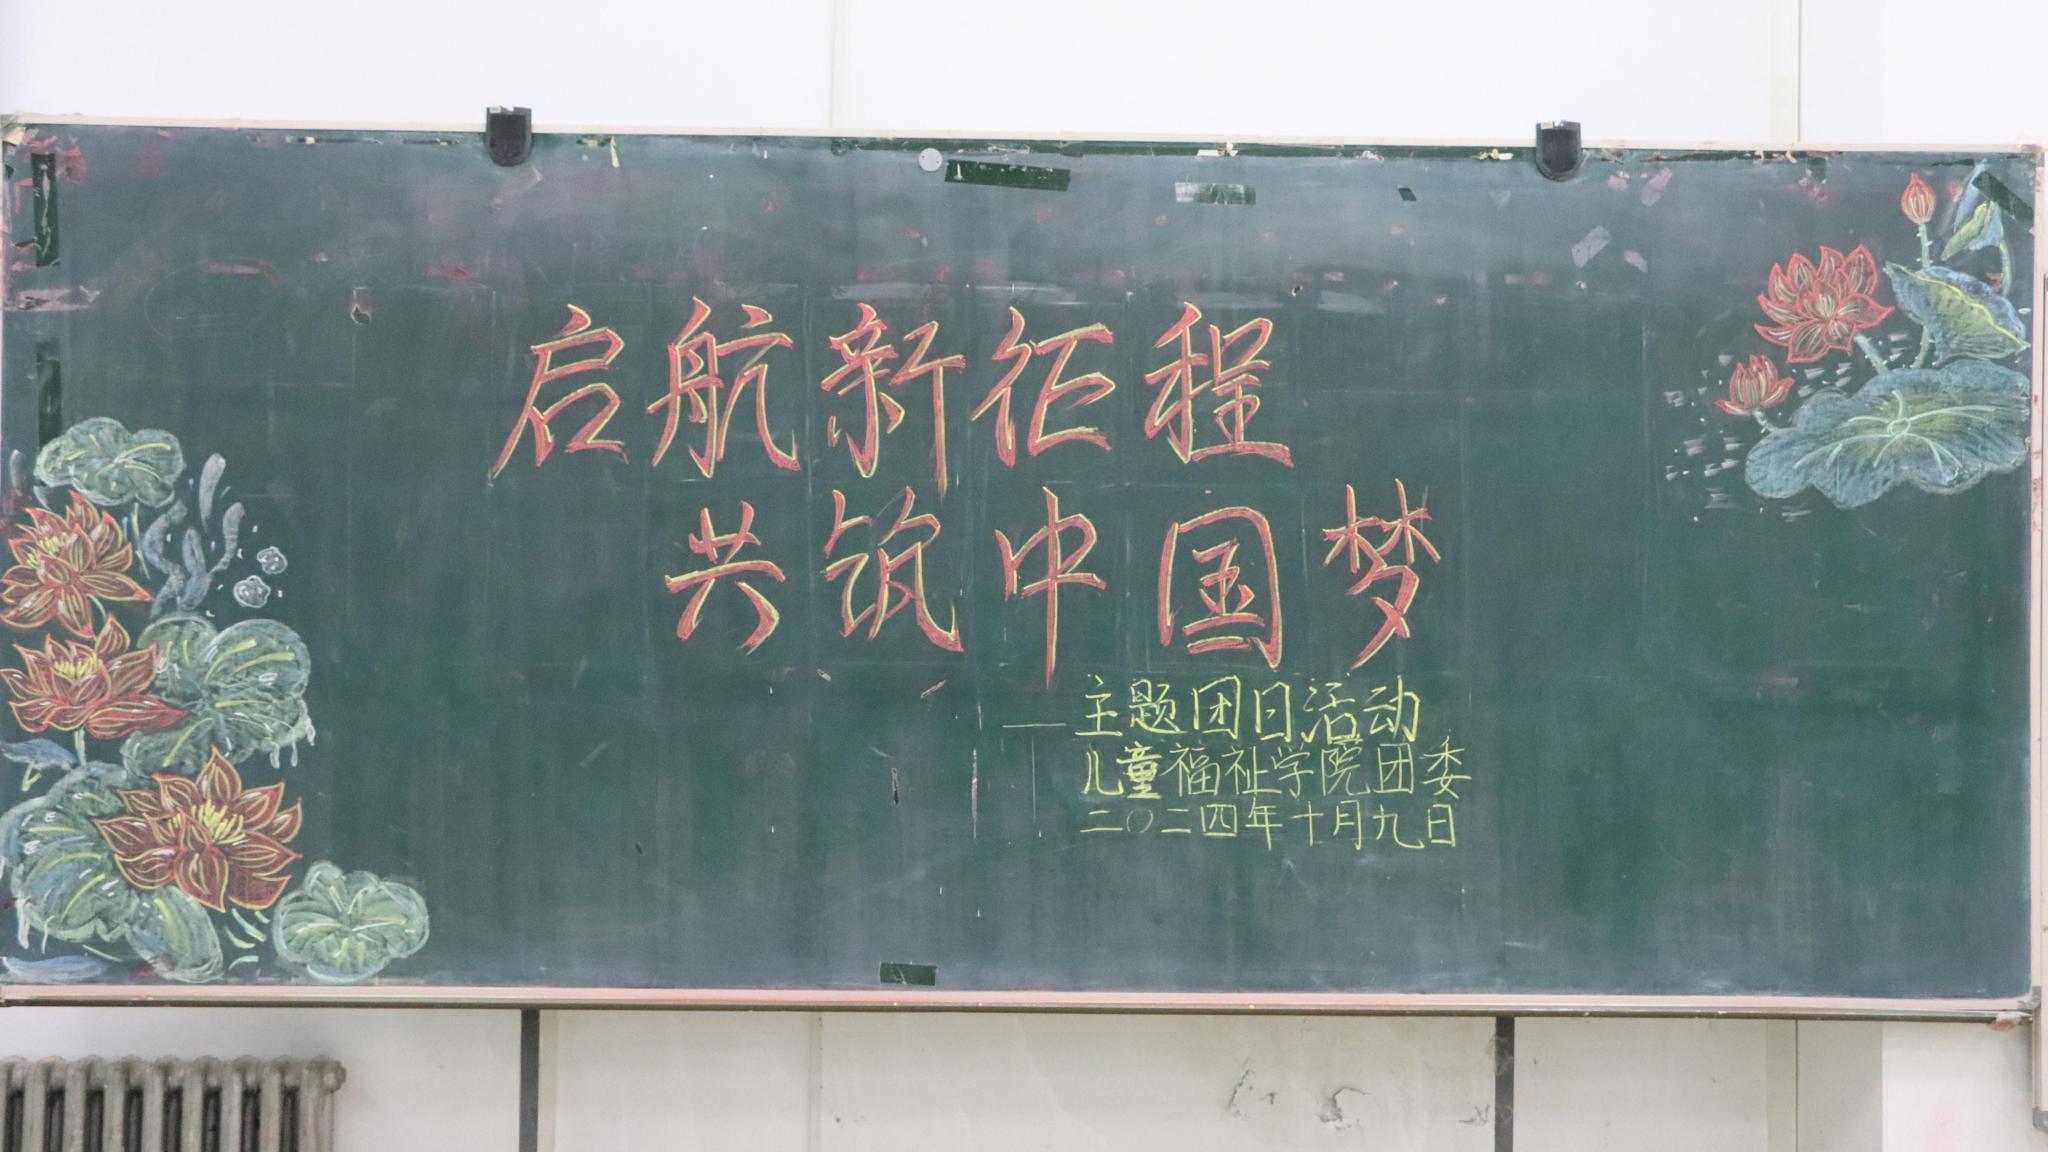 启航新征程
共筑中国梦
——主题团日活动
儿童福祉学院团委
二〇二四年十月九日